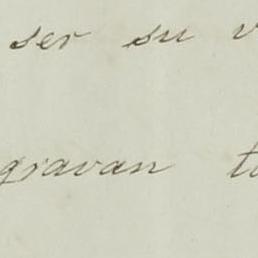 ser su v
gravan t